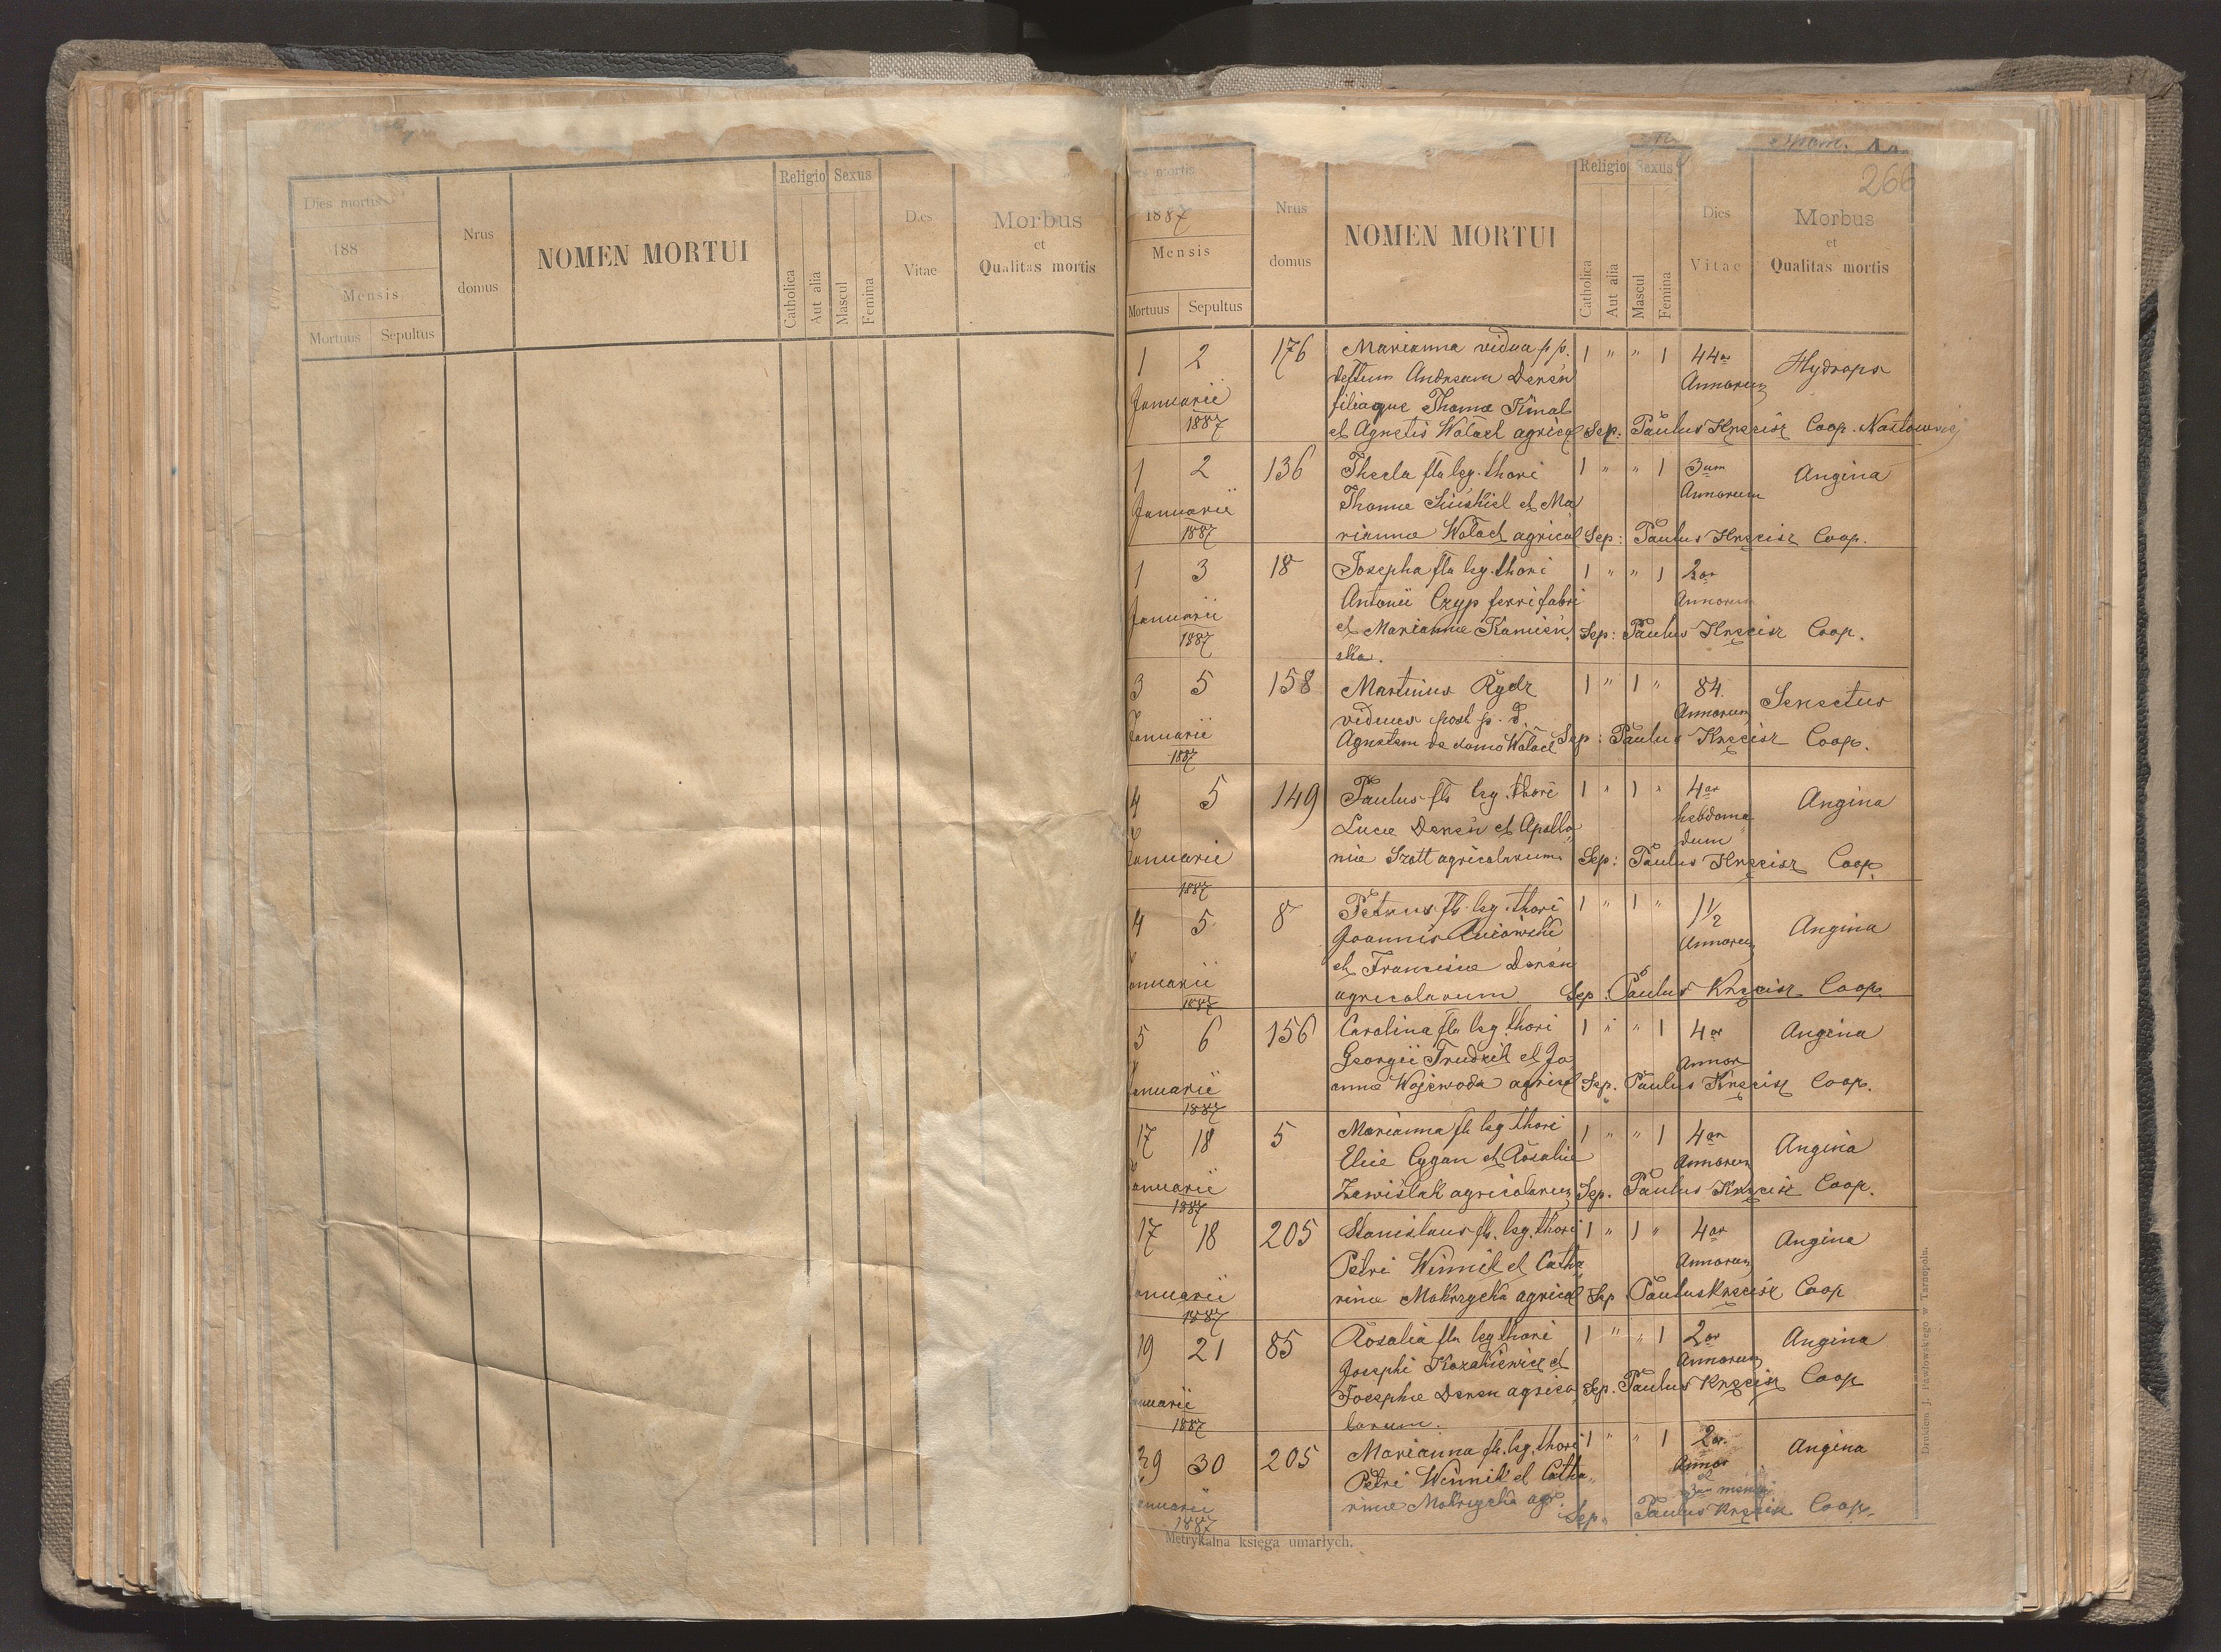 Dies mortis
188
Mensis
Mortuus Sepultus
Nrus
domus
NOMEN MORTUI
Religio Sexus
Catholica
Aut alia
Mascul
Femina
Dies
Vitae
Morbus
et
Qualitas mortis
266
Dies mortis
1887
Mensis
Mortuus Sepultus
Nrus
domus
NOMEN MORTUI
Religio Sexus
Catholica
Aut alia
Mascul
Femina
Dies
Vitae
Morbus
et
Qualitas mortis
1 2 176 Marianna vidua p. p. 1 " " 1 44or Hydrops
deftum Andream Dereń Annorum
Januarii filiaque Thomæ Kmal
1887 et Agnetis Wołoch agricol Sep: Paulus Kręcisz Coop.
1 2 136 Thecla fla leg. thori 1 " " 1 3um Angina
Januarii Thomæ et Ma Annorum
1887 riannæ Wołoch agricol Sep: Paulus Kręcisz Coop.
1 3 18 Josepha fla leg. thori 1 " " 1 2or
Januarii Antonii Czyp ferrifabri Annorum
1887 et Mariannæ Kamień Sep: Paulus Kręcisz Coop.
ska.
3 5 158 Martinus Rydz 1 " 1 " 84 Senectus
Januarii viduus post p. d. Annorum
1887 Agnetem de domo Wołoch Sep: Paulus Kręcisz Coop.
4 5 149 Paulus fls leg. thori 1 " 1 " 4or Angina
Lucæ Dereń et Apollo hebdoma
Januarii niæ Szott agricolarum dum
1887 Sep: Paulus Kręcisz Coop.
4 5 8 Petrus fls leg. thori 1 " 1 " 1½ Angina
Joannis et Franciscæ Dereń Annorum
Januarii agricolarum
1887 Sep. Paulus Kręcisz Coop.
5 6 156 Carolina fla leg. thori 1 " " 1 4or Angina
Georgii Trudzik et Jo Annor
Januarii annæ Wojewoda agricol Sep. Paulus Kręcisz Coop.
1887
17 18 5 Marianna fla leg. thori 1 " " 1 4or Angina
Eliæ Cygan et Rosaliæ Annorum
Januarii Zawiślak agricolarum Sep. Paulus Kręcisz Coop.
1887
17 18 205 Stanislaus fls. leg. thori 1 " 1 " 4or Angina
Petri Winnik et Catha Annorum
Januarii rinæ Mokrzycka agricol Sep Paulus Kręcisz Coop
1887
19 21 85 Rosalia fla leg thori 1 " " 1 2or Angina
Josephi Kozakiewicz et Annorum
Januarii Josephæ Dereń agrico Sep. Paulus Kręcisz Coop
1887 larum.
29 30 205 Marianna fla. leg. thori 1 " " 1 2or Angina
Petri Winnik et Catha Annor
Januarii rinæ Mokrzycka agr. et 3um mens
1887 Sep. Paulus Kręcisz Coop.
Metrykalna księga umarłych.
Drukiem J. Pawłowskiego w Tarnopolu.